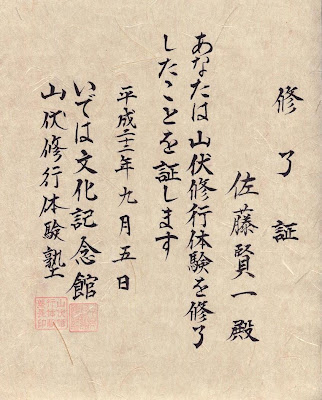 修了証
佐藤賢一殿
あなたは山伏修行体験を修了
したことを証します
平成二十二年九月五日
いでは文化記念館
山伏修行体験塾